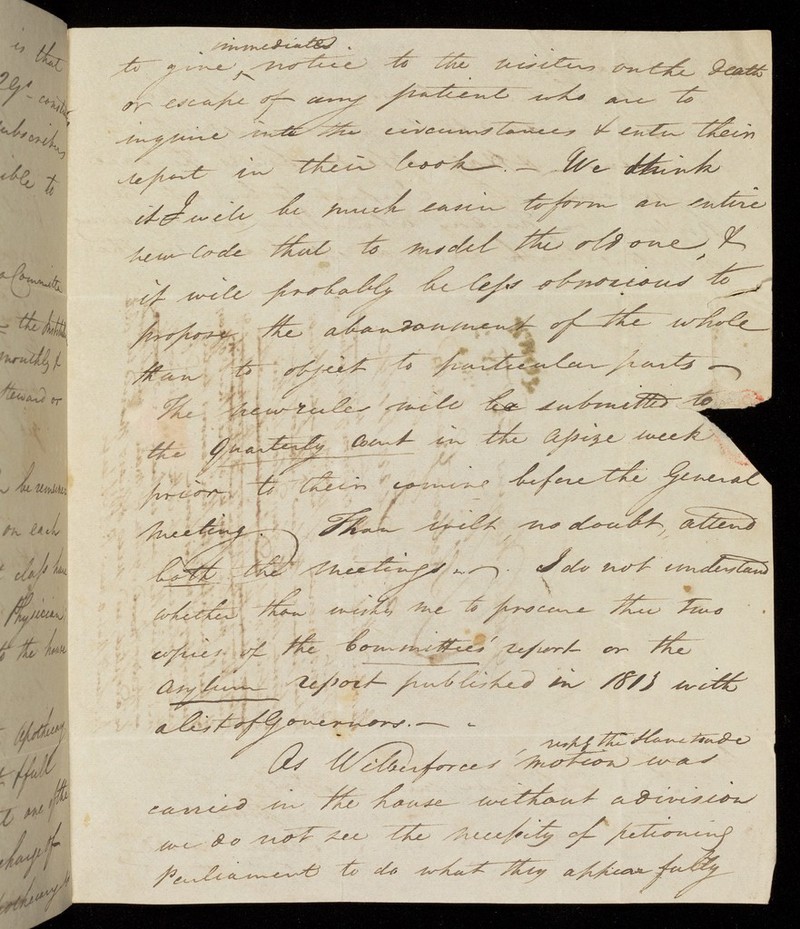 is that
29s - constitu
subscribers
ible to
a Committee
- the
monthly &
Steward or
be
on each
class have
Physician
to the house
Apothecary
full
t one of the
charge of
immediate
to give ^ notice to the visiters on the death
or escape of any patient who are to
inquire into the circumstances & enter their
report in their book. - We think
it will be much easier to form an entire
new code that to model the old one, &
it will probably be less obnoxious to
propose the abandonment of the whole
than to object to particular parts -
The new rules will be submitted to
the Quarterly Court in the Assize week
prior to their coming before the General
Meeting. Thou wilt, no doubt, attend
both the meetings -. I do not understand
whether thou wishes me to procure thee two
copies of the Committees' report or the
Asylum report published in 1813 with
a list of Governors. -
respg the Slave trade
As Wilberforces' motion was
carried in the house without a division
we do not see the necessity of petioning
Parliament to do what they appear fully